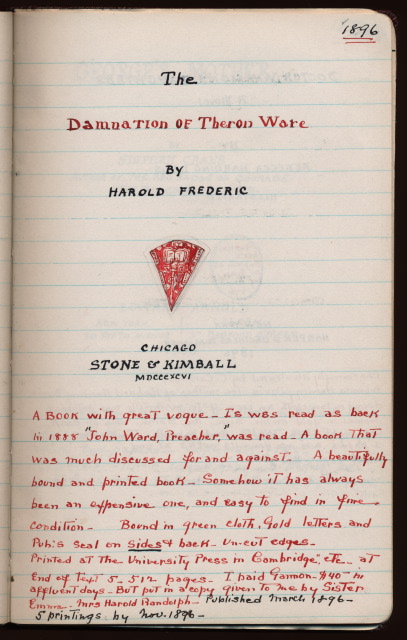 1896
The
Damnation of Theron Ware
By
HAROLD FREDERIC
CHICAGO
STONE & KIMBALL
MDCCCXCVI
A Book with great vogue - Is was read as back
in 1888 "John Ward, Preacher," was read - A book that
was much discussed for and against. A beautifully
bound and printed book - Somehow it has always
been an expensive one, and easy to find in fine
condition - Bound in green cloth, Gold letters and
Pub's seal on Sides & back - un-cut edges -
Printed at the University Press in Cambridge", etc at
End of text 5 - 512 pages - I paid Gannon - $40 - in
affluent days - But put in a copy given to me by Sister
Emma - Mrs Harold Randolph - Published March 1896 -
5 printings by Nov. 1896 -